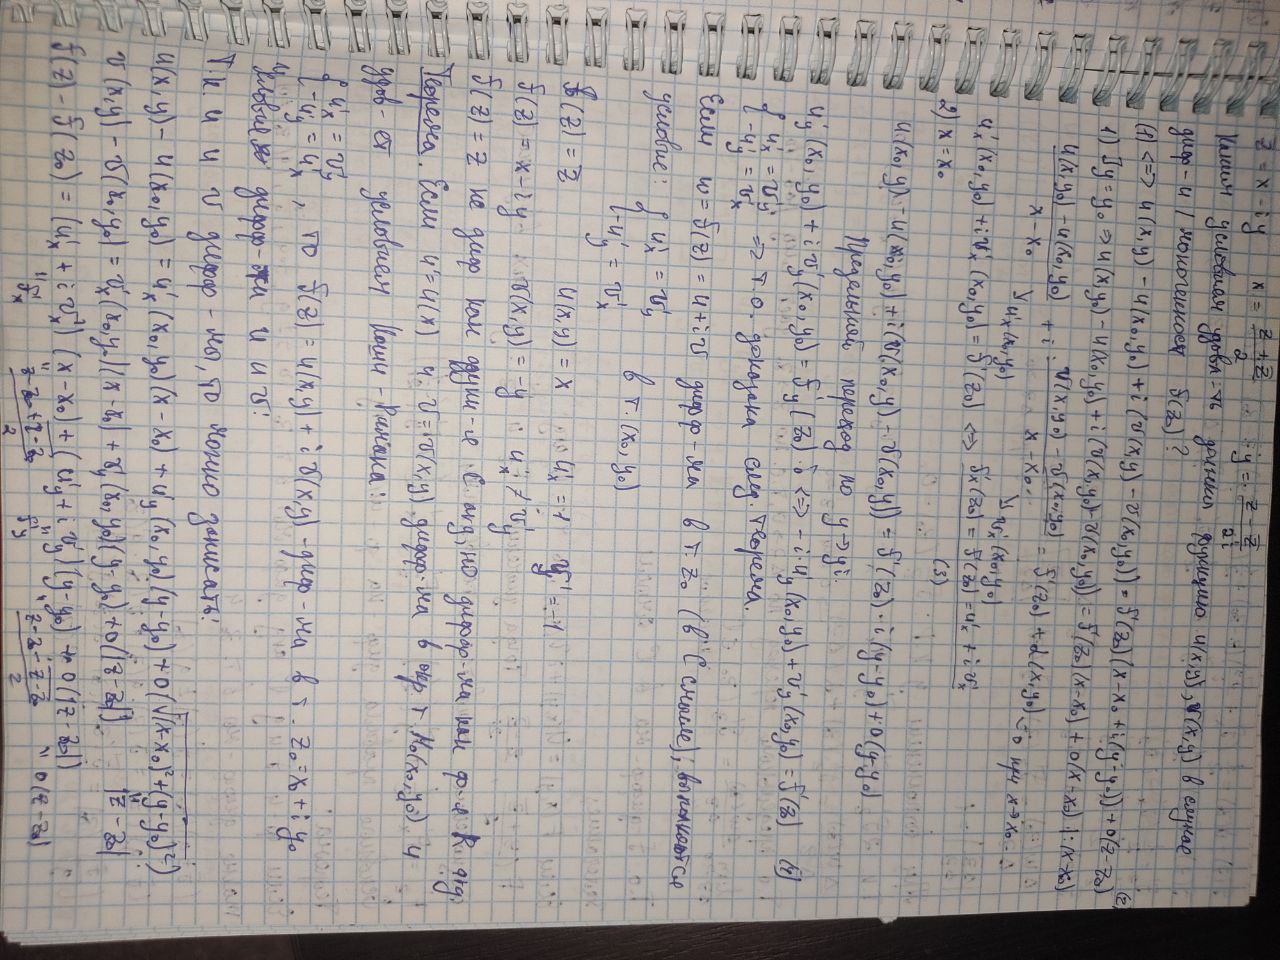 z̅ = x - iy    x = (z + z̅)/2    iy = (z - z̅)/2i
Каким условиям удовл-ть должны функции u(x,y), v(x,y) в случае
дифф-и f(z)?
(1) <=> u(x,y) - u(x₀,y₀) + i(v(x,y) - v(x₀,y₀)) = f'(z₀)(x - x₀ + i(y - y₀)) + o(z - z₀) (2)
1) y = y₀ => u(x,y₀) - u(x₀,y₀) + i(v(x,y₀) - v(x₀,y₀)) = f'(z₀)(x - x₀) + o(x - x₀) |:(x - x₀)
(u(x,y₀) - u(x₀,y₀))/(x - x₀) + i (v(x,y₀) - v(x₀,y₀))/(x - x₀) = f'(z₀) + α(x,y₀) → 0 при x → x₀
↓ u'ₓ(x₀,y₀)    ↓ v'ₓ(x₀,y₀)
u'ₓ(x₀,y₀) + i v'ₓ(x₀,y₀) = f'(z₀) <=> f'ₓ(z₀) = f'(z₀) = u'ₓ + i v'ₓ
(3)
2) x = x₀
u(x₀,y) - u(x₀,y₀) + i(v(x₀,y) - v(x₀,y₀)) = f'(z₀) · i(y - y₀) + o(y - y₀)
Предельный переход по y → y₀:
u'y(x₀,y₀) + i v'y(x₀,y₀) = f'y(z₀) · i <=> - i u'y(x₀,y₀) + v'y(x₀,y₀) = f'(z₀) (4)
{ u'ₓ = v'y
{ -u'y = v'ₓ => т.о. доказана след. теорема.
Если w = f(z) = u + iv дифф-ма в т. z₀ (в ℂ смысле), выполняются
условие: { u'ₓ = v'y    в т. (x₀, y₀)
{ -u'y = v'ₓ
f(z) = z̅    u(x,y) = x    u'ₓ = 1    v'y = -1
f(z) = x - iy    v(x,y) = -y    u'ₓ ≠ v'y
f(z) = z̅ не дифф как функ-я ℂ арг, но дифф-ма как ф-я ℝ арг.
Теорема. Если u = u(x,y), v = v(x,y) дифф-ма в окр. т. M₀(x₀,y₀) и
удов-ет условиям Коши-Римана:
{ u'ₓ = v'y
{ -u'y = v'ₓ, то f(z) = u(x,y) + i v(x,y) - дифф-ма в т. z₀ = x₀ + i y₀
условие дифф-ти u и v:
Т.к. u и v дифф-мы, то можно записать:
u(x,y) - u(x₀,y₀) = u'ₓ(x₀,y₀)(x - x₀) + u'y(x₀,y₀)(y - y₀) + o(√((x-x₀)² + (y-y₀)²))
v(x,y) - v(x₀,y₀) = v'ₓ(x₀,y₀)(x - x₀) + v'y(x₀,y₀)(y - y₀) + o(|z - z₀|)    |z - z₀|
f(z) - f(z₀) = (u'ₓ + i v'ₓ)(x - x₀) + (u'y + i v'y)(y - y₀) + o(|z - z₀|)